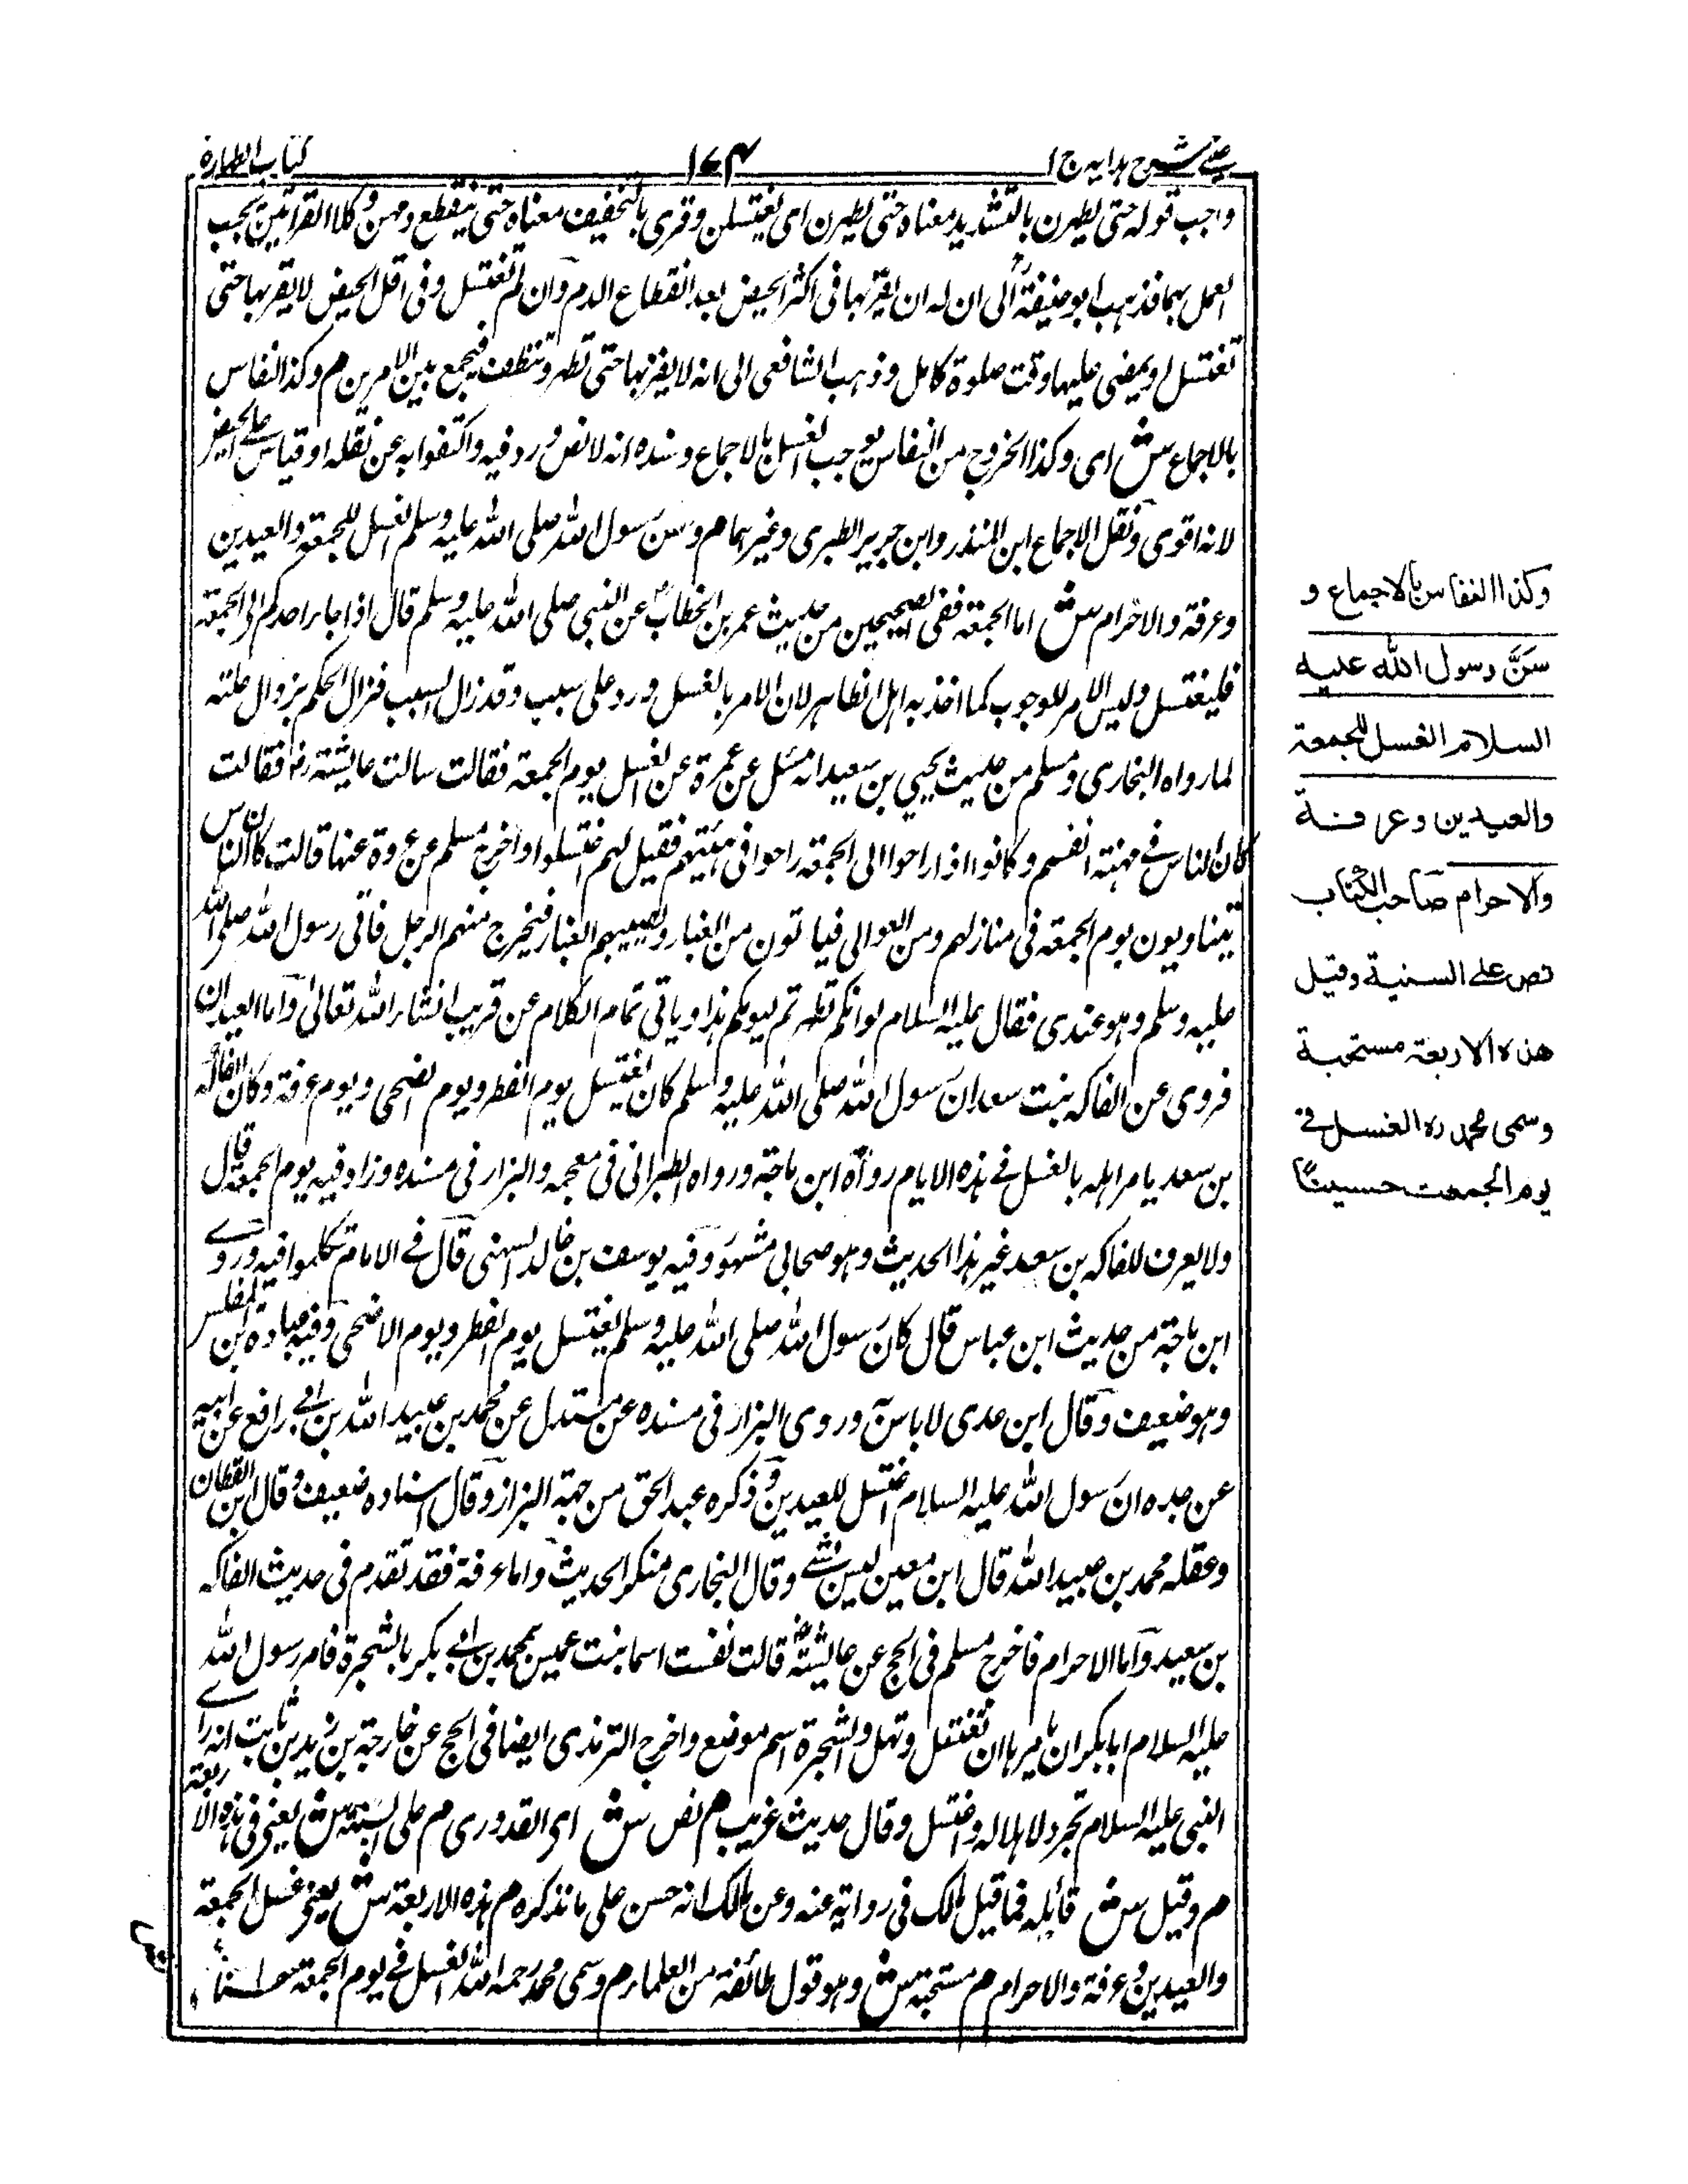 عینی شرح ہدایہ ج ۱
۱۷۴
کتاب الطہارة
واجب قوله حتى يطهرن بالتشديد معناه حتى يطهرن اى يغتسلن وقرى بالتخفيف معناه حتى ينقطع دمهن وكلا القرائتين يجب
العمل بهما فذهب ابو حنيفة رح الى ان له ان يقربها فى اكثر الحيض بعد انقطاع الدم وان لم تغتسل وفى اقل الحيض لا يقربها حتى
تغتسل او يمضى عليها وقت صلوة كامل وذهب الشافعى الى انه لا يقربها حتى تطهر وتنظف فيجمع بين الامرين م وكذا النفاس
بالاجماع ش اى وكذا الخروج من النفاس يوجب الغسل بالاجماع وسنده انه لا نص ورد فيه واكتفوا به عن نقله او قياس على الحيض
لانه اقوى ونقل الاجماع ابن المنذر وابن جرير الطبرى وغيرهما م وسن رسول الله صلى الله عليه وسلم الغسل للجمعة والعيدين
وعرفة والاحرام ش اما الجمعة ففى الصحيحين من حديث عمر بن الخطاب رض عن النبى صلى الله عليه وسلم قال اذا جاء احدكم الى الجمعة
فليغتسل وليس الامر للوجوب كما اخذ به اهل الظاهر لان الامر بالغسل ورد على سبب وقد زال السبب فزال الحكم بزوال علته
لما رواه البخارى ومسلم من حديث يحيى بن سعيد انه سئل عن عمرة عن الغسل يوم الجمعة فقالت سالت عايشة رض فقالت
كان الناس فے مهنة انفسهم وكانوا اذا راحوا الى الجمعة راحوا فى هيئتهم فقيل لهم اغتسلوا واخرج مسلم عن عروة عنها قالت كان الناس
يتناوبون يوم الجمعة فى منازلهم ومن العوالى فياتون من الغبار ويصيبهم الغبار فيخرج منهم الرجل فاتى رسول الله صلى الله
عليه وسلم وهو عندى فقال عليه السلام لو انكم تطهرتم ليومكم هذا وياتى تمام الكلام عن قريب انشاء الله تعالى واما العيدان
فروى عن الفاكه بنت سعد ان رسول الله صلى الله عليه وسلم كان يغتسل يوم الفطر ويوم الضحى ويوم عرفة وكان الفاكه
بن سعد يامر اهله بالغسل فے هذه الايام رواه ابن ماجة ورواه الطبرانى فى معجمه والبزار فى مسنده وزاد فيه يوم الجمعة قال
ولا يعرف للفاكه بن سعد غير هذا الحديث وهو صحابى مشهور وفيه يوسف بن خالد السهنى قال فے الامام تكلموا فيه وروے
ابن ماجة من حديث ابن عباس قال كان رسول الله صلى الله عليه وسلم يغتسل يوم الفطر ويوم الاضحى وفيه جبادة ابن المغلس
وهو ضعيف وقال ابن عدى لا باس به وروى البزار فى مسنده عن مندل عن محمد بن عبيد الله بن ابے رافع عن ابيه
عن جده ان رسول الله عليه السلام اغتسل للعيدين وذكره عبد الحق من جهة البزار وقال اسناده ضعيف وقال ابن القطان
وعقله محمد بن عبيد الله قال ابن معين ليس بشے وقال البخارى منكر الحديث واما عرفة فقد تقدم فى حديث الفاكه
بن سعيد واما الاحرام فاخرج مسلم فى الحج عن عايشة رض قالت نفست اسما بنت عميس بمحمد بن ابے بكر بالشجرة فامر رسول الله
عليه السلام ابا بكر ان يامرها ان تغتسل وتهل والشجرة اسم موضع واخرج الترمذى ايضا فى الحج عن خارجة بن زيد بن ثابت انه راے
النبى عليه السلام تجرد لاهلاله واغتسل وقال حديث غريب م نص ش اى القدورى م على السنية ش يعنى فى هذه الاربعة
م وقيل ش قائله فما قيل مالك فى رواية عنه وعن مالك انه حسن على ما نذكره م هذه الاربعة ش يعنى غسل الجمعة
والعيدين وعرفة والاحرام م مستحبة ش وهو قول طائفة من العلماء م وسمى محمد رحمه الله الغسل فے يوم الجمعة حسنا
وكذا النفاس بالاجماع و
سنَّ رسول الله عليه
السلام الغسل للجمعة
والعيدين وعرفة
والاحرام صاحب الكتاب
نص على السنية وقيل
هذه الاربعة مستحبة
وسمى محمد ره الغسل فے
يوم الجمعة حسنًا